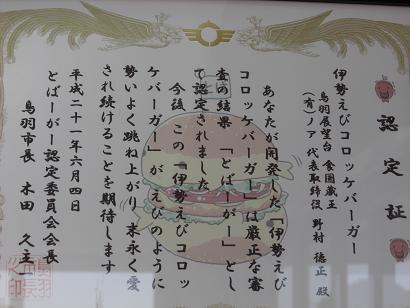 認定証
伊勢えびコロッケバーガー
鳥羽展望台 食国蔵王
(有)ノア 代表取締役 野村 徳正 殿
あなたが開発した「伊勢えび
コロッケバーガー」は厳正な審
査の結果「とばーがー」とし
て認定されました
今後 この「伊勢えびコロッ
ケバーガー」がえびのように
勢いよく跳ね上がり 末永く愛
され続けることを期待します
平成二十一年六月四日
とばーがー認定委員会会長
鳥羽市長 木田 久主一